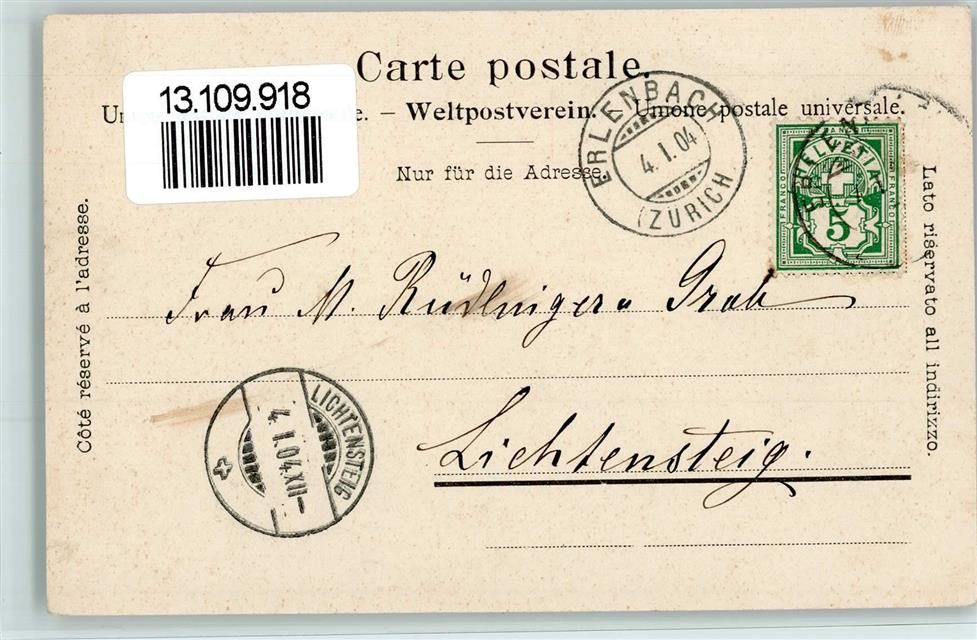 Carte postale.
13.109.918
Un e. – Weltpostverein. – Unione postale universale.
Nur für die Adresse.
ERLENBACH
4.I.04
(ZÜRICH
HELVETIA
FRANCO
FRANCO
5
Côté réservé à l'adresse.
Lato riservato all indirizzo.
Frau M. Rüdlinger Grob
LICHTENSTEIG
4.I.04.XII–
Lichtensteig.